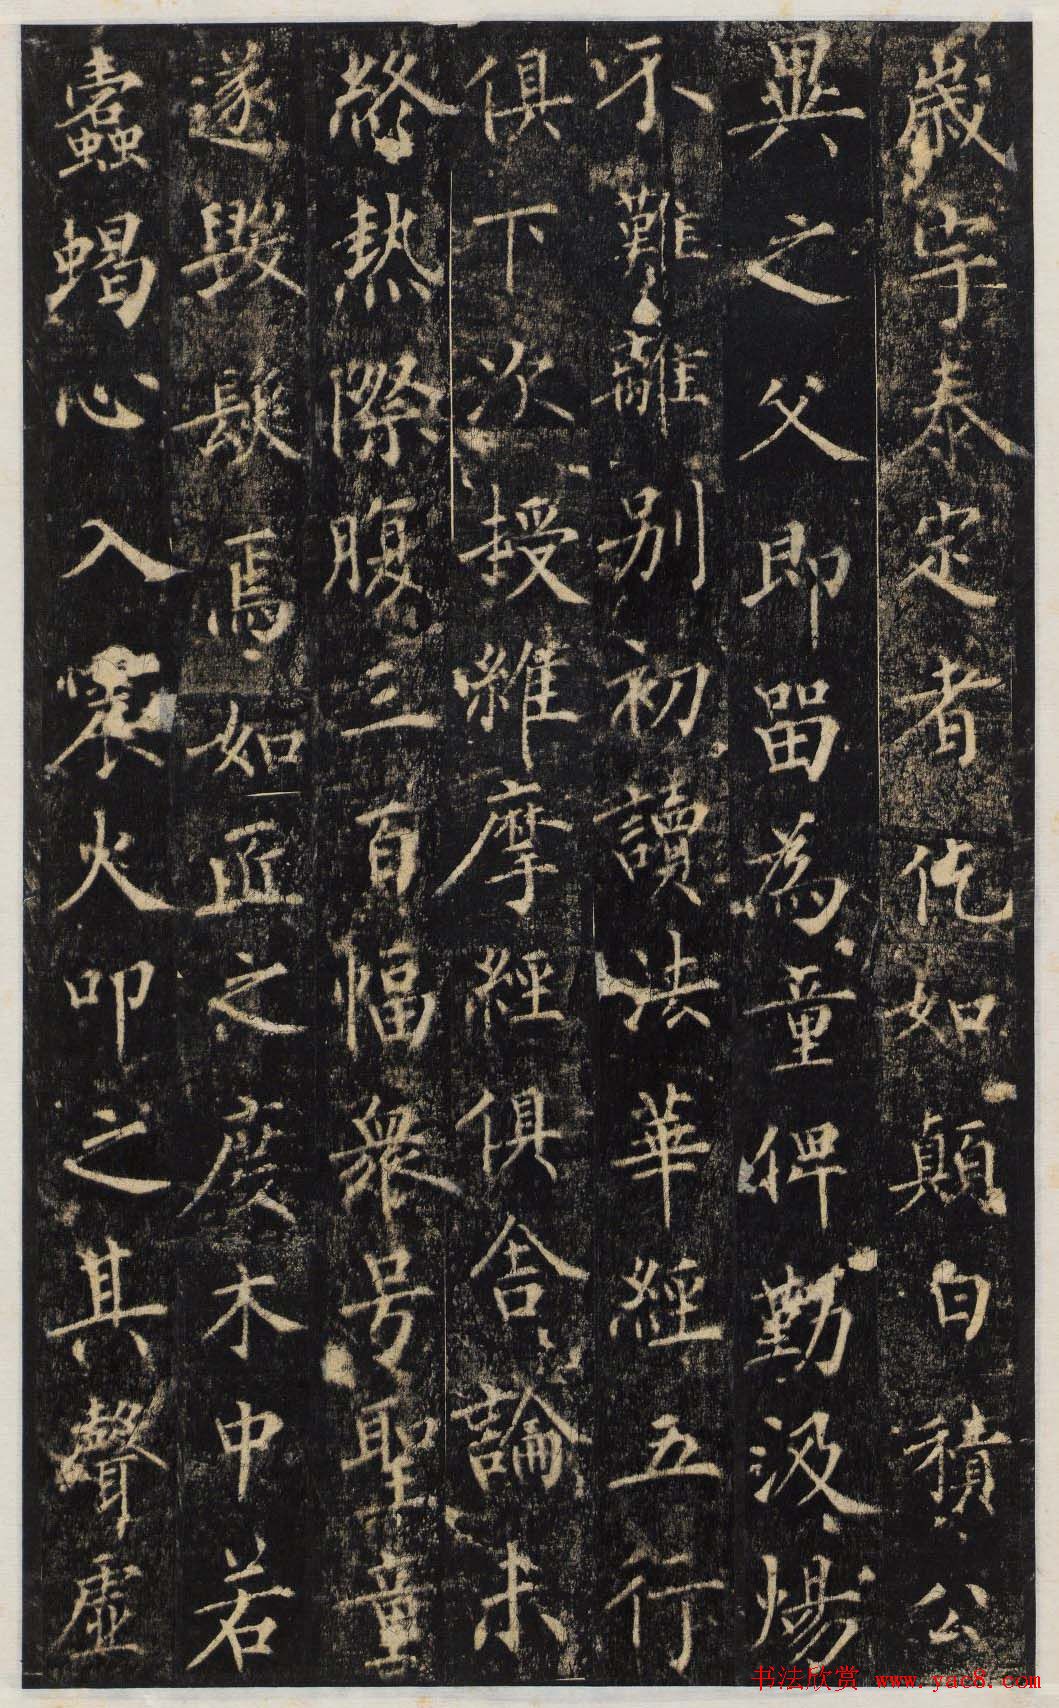 歲宇泰定者仡如顛白積公
異之父即留為童俾勤汲煬
不難離別初讀法華經五行
俱下次授維摩經俱舍論未
終熱際腹三百幅衆号聖童
遂毀髮焉如匠之度木中若
蠹蝎心入火叩之其聲虛
书法欣赏 www.yac8.com